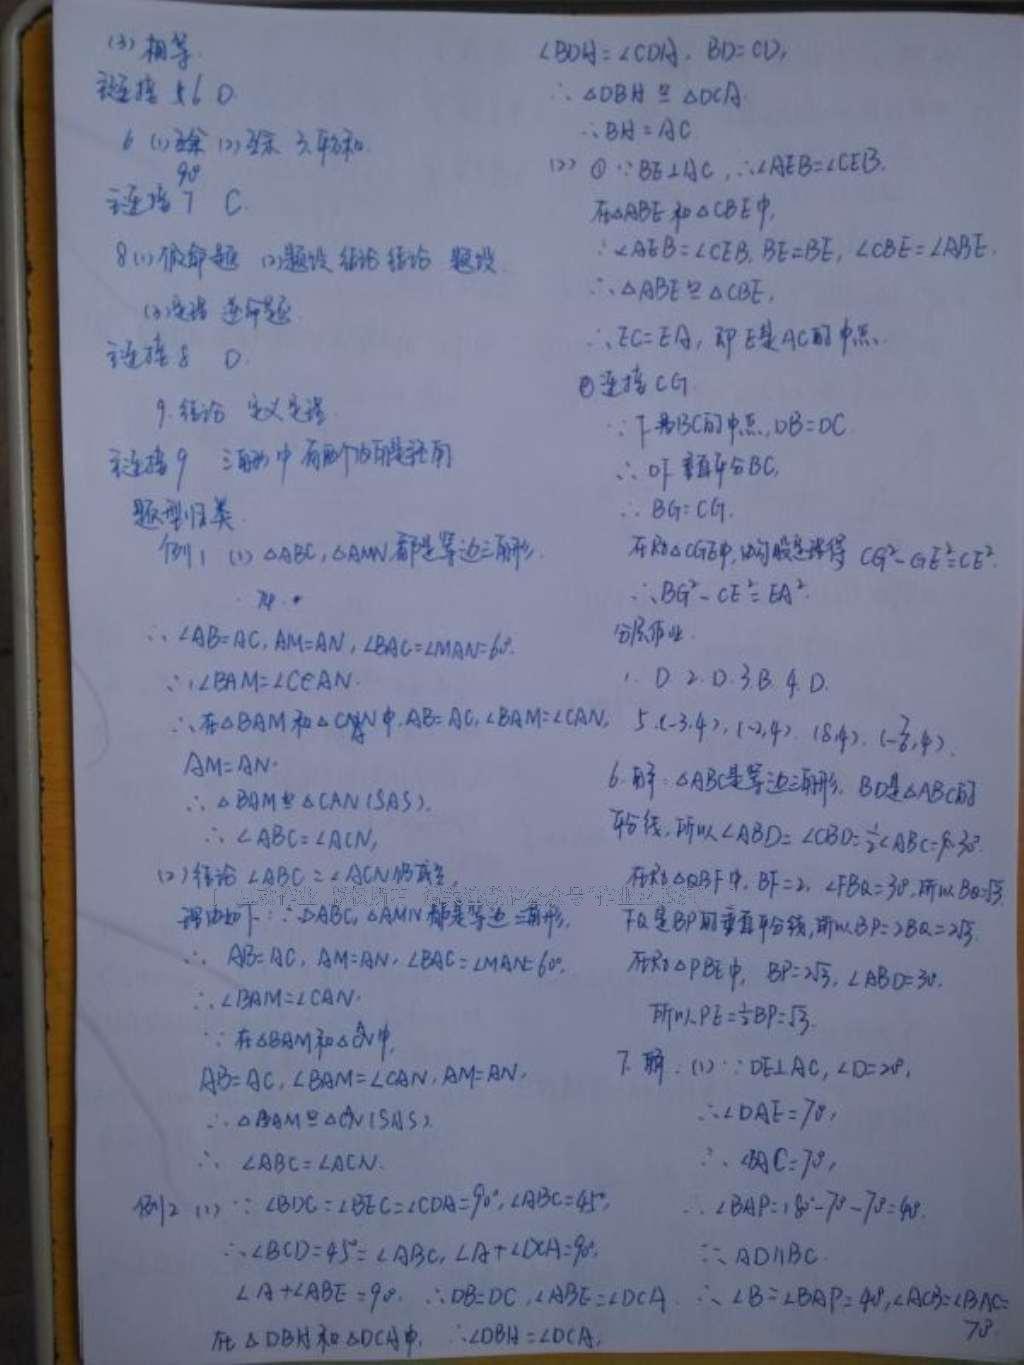 (3) 相等.
主连接 5 6 D
6 (1) 互余 (2) 互余 3. 平方和.
90°
主连接 7 C.
8 (1) 假命题 (2) 题设 结论 结论 题设
(3) 定理 逆命题
主连接 8 D.
9. 结论 定义 定理.
主连接 9 三角形中有两个内角是钝角
题型归类
例1 (1) △ABC, △AMN都是等边三角形.
∴ ∠AB=AC, AM=AN, ∠BAC=∠MAN=60°.
∴ ∠BAM=∠CAN.
∴ 在△BAM和△CAN中, AB=AC, ∠BAM=∠CAN,
AM=AN.
∴ △BAM≌△CAN(SAS).
∴ ∠ABC=∠ACN,
(2) 结论∠ABC=∠ACN仍成立,
理由如下: ∵△ABC, △AMN都是等边三角形,
∴ AB=AC, AM=AN, ∠BAC=∠MAN=60°,
∴ ∠BAM=∠CAN.
∵ 在△BAM和△CAN中,
AB=AC, ∠BAM=∠CAN, AM=AN,
∴ △BAM≌△CAN(SAS)
∴ ∠ABC=∠ACN.
例2 (1) ∵ ∠BDC=∠BEC=∠CDA=90°, ∠ABC=45°,
∴ ∠BCD=45°=∠ABC, ∠A+∠DCA=90°,
∠A+∠ABE=90°. ∴DB=DC, ∠ABE=∠DCA
在△DBH和△DCA中, ∴∠DBH=∠DCA,
∠BDH=∠CDA, BD=CD,
∴ △DBH≌△DCA.
∴BH=AC.
(2) ① ∵BE⊥AC, ∴∠AEB=∠CEB.
在△ABE和△CBE中,
∵∠AEB=∠CEB, BE=BE, ∠CBE=∠ABE,
∴ △ABE≌△CBE,
∴ EC=EA, 即E是AC的中点.
② 连接CG.
∵F为BC的中点, DB=DC
∴ DF垂直平分BC,
∴ BG=CG.
在Rt△CGE中, 由勾股定理得 CG²-GE²=CE².
∴BG²-CE²=EA².
分层作业
1. D 2. D. 3. B. 4. D.
5. (-3,4), (-2,4). (8,4), (-7/6,4).
6. 解: △ABC是等边三角形, BD是△ABC的
平分线, 所以∠ABD=∠CBD=½∠ABC=30°.
在Rt△QBF中, BF=2, ∠FBQ=30°, 所以BQ=√3.
FQ是BP的垂直平分线, 所以BP=2BQ=2√3.
在Rt△PBE中, BP=2√3, ∠ABD=30°.
所以PE=½BP=√3.
7. 解: (1) ∵DE⊥AC, ∠D=20°,
∴∠DAE=70°,
∴ ∠BAC=70°,
∴ ∠BAP=180°-70°-70°=40°.
∵ AD∥BC.
∴ ∠B=∠BAP=40°, ∠ACB=∠BAC=
70°.